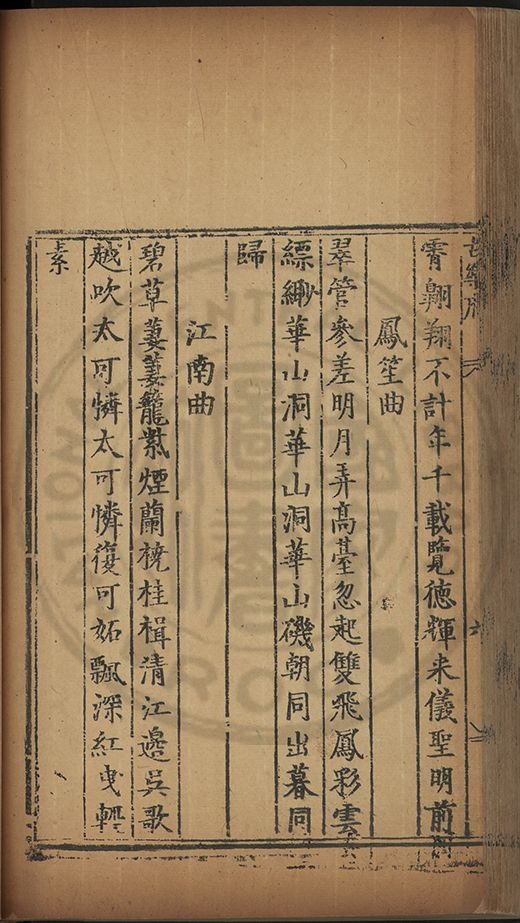 霄翺翔不計年千載覽德輝來儀聖明前
鳳笙曲
翠管參差明月弄高臺忽起雙飛鳳彩雲
縹緲華山洞華山洞華山磯朝同出暮同
歸
江南曲
碧草萋萋籠紫煙蘭橈桂楫清江邊吳歌
越吹太可憐太可憐復可妬飄深紅曳輕
素